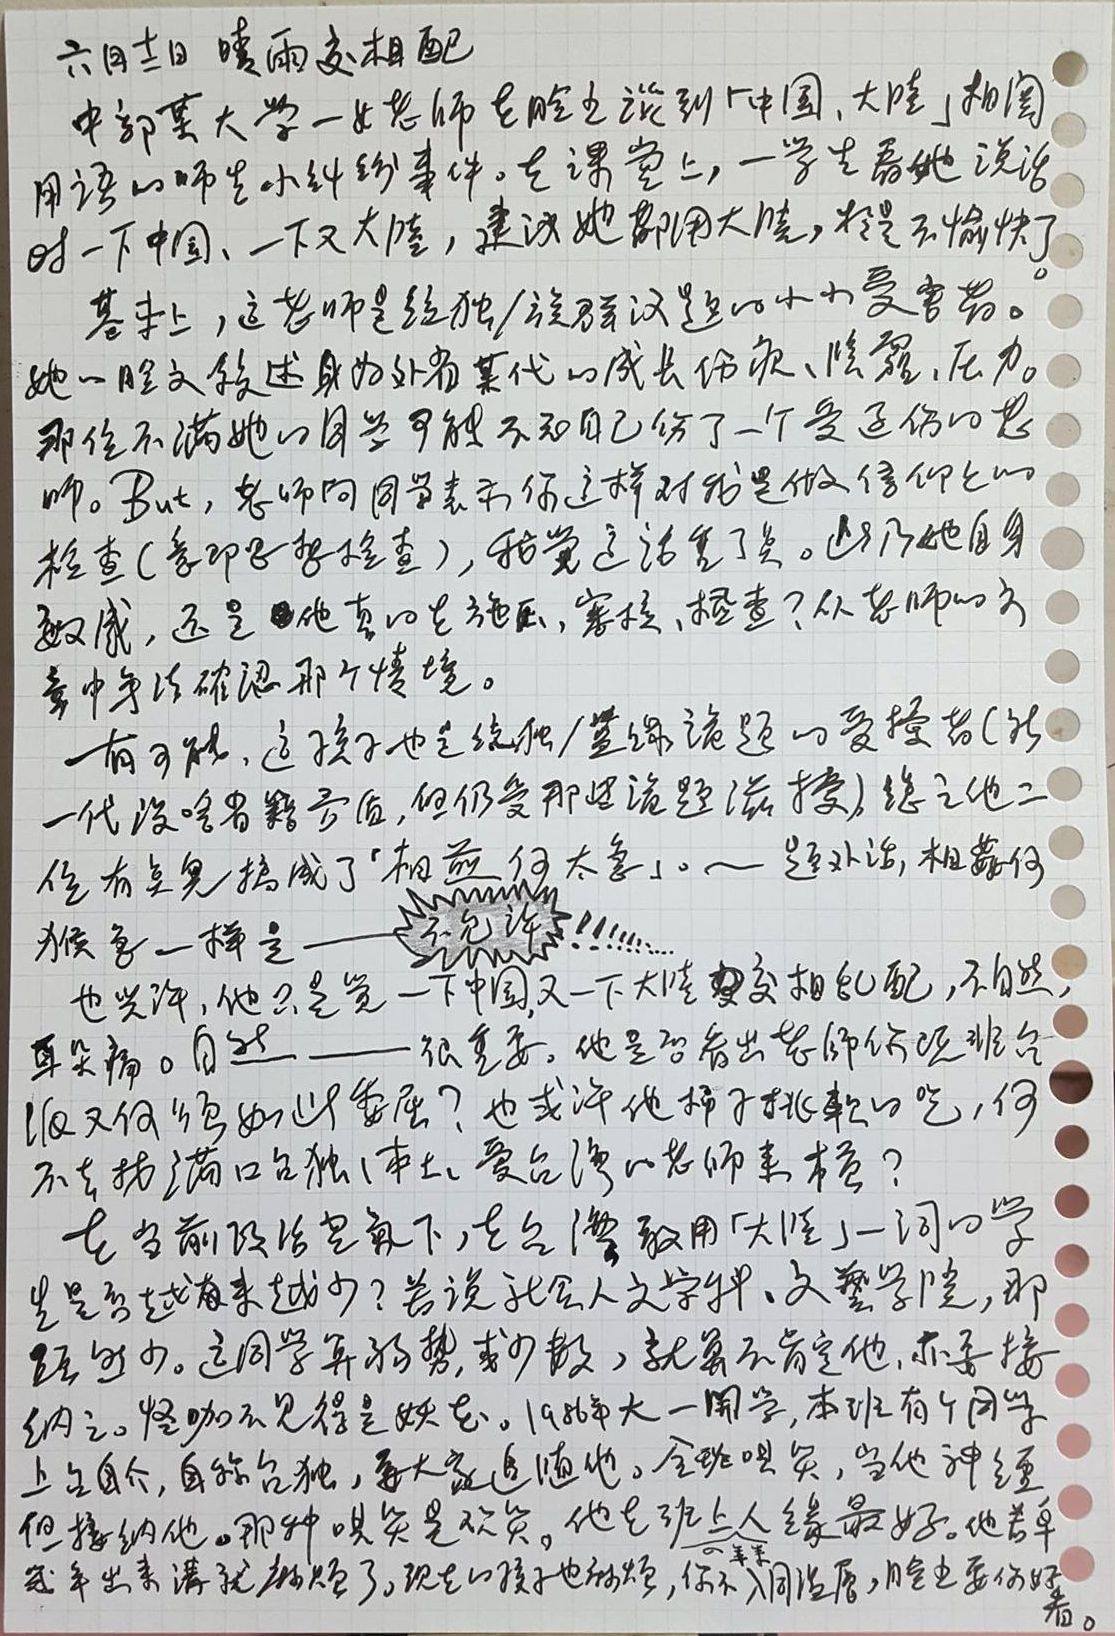 六月十二日 晴雨交相配
中部某大学一女老师在脸书谈到「中国、大陆」相関
用语の师生小纠纷事件。在课堂上，一学生看她说话
时一下中国、一下又大陸，建议她都用大陸，於是不愉快了。
基本上，这老师是统独/族群议题の小小受害者。
她の脸文叙述身为外省某代の成长伤痕、阴霾、压力。
那位不满她の同学可能不知自己伤了一个受过伤の老
师。But，老师向同学表示你这样对我是做信仰上の
检查（意即思想检查），我觉这话隻了点。此乃她自身
敏感，还是他真の在施压、審核、検查？从老师の文
章中争法確認那个情境。
有可能，这孩子也是统独/蓝绿議题の受擾者（新
一代没啥省籍包值，但仍受那些議题滋擾）總之他二
位有点兒搞成了「相煎何太急」。～题外话，相姦何
猴急一樣是——不允许!!!……
也兴许，他只是觉一下中国,又一下大陸交相乱配，不自然，
耳朵痛。自然——很重要。他是否看出老师你既非台
派又何须如此委屈？也或许他柿子挑軟の吃，何
不去找满口台独、本土、爱台湾の老师来槓？
在当前政治空氣下，在台灣敢用「大陸」一词の学
生是否越來越少？若说社会人文学科、文藝学院，那
显然少。这同学算弱勢,或少数，就算不肯定他,亦要接
纳之。怪咖不见得是妖怎。1986年大一開学，本班有个同学
上台自介，自称台独，要大家追随他。全班哄笑，当他神经
但接纳他。那种哄笑是欢笑。他在班上人缘最好。他若早
幾年出来講就麻烦了。现在の孩子也麻烦，你不入同溫層，脸書要你好
看。